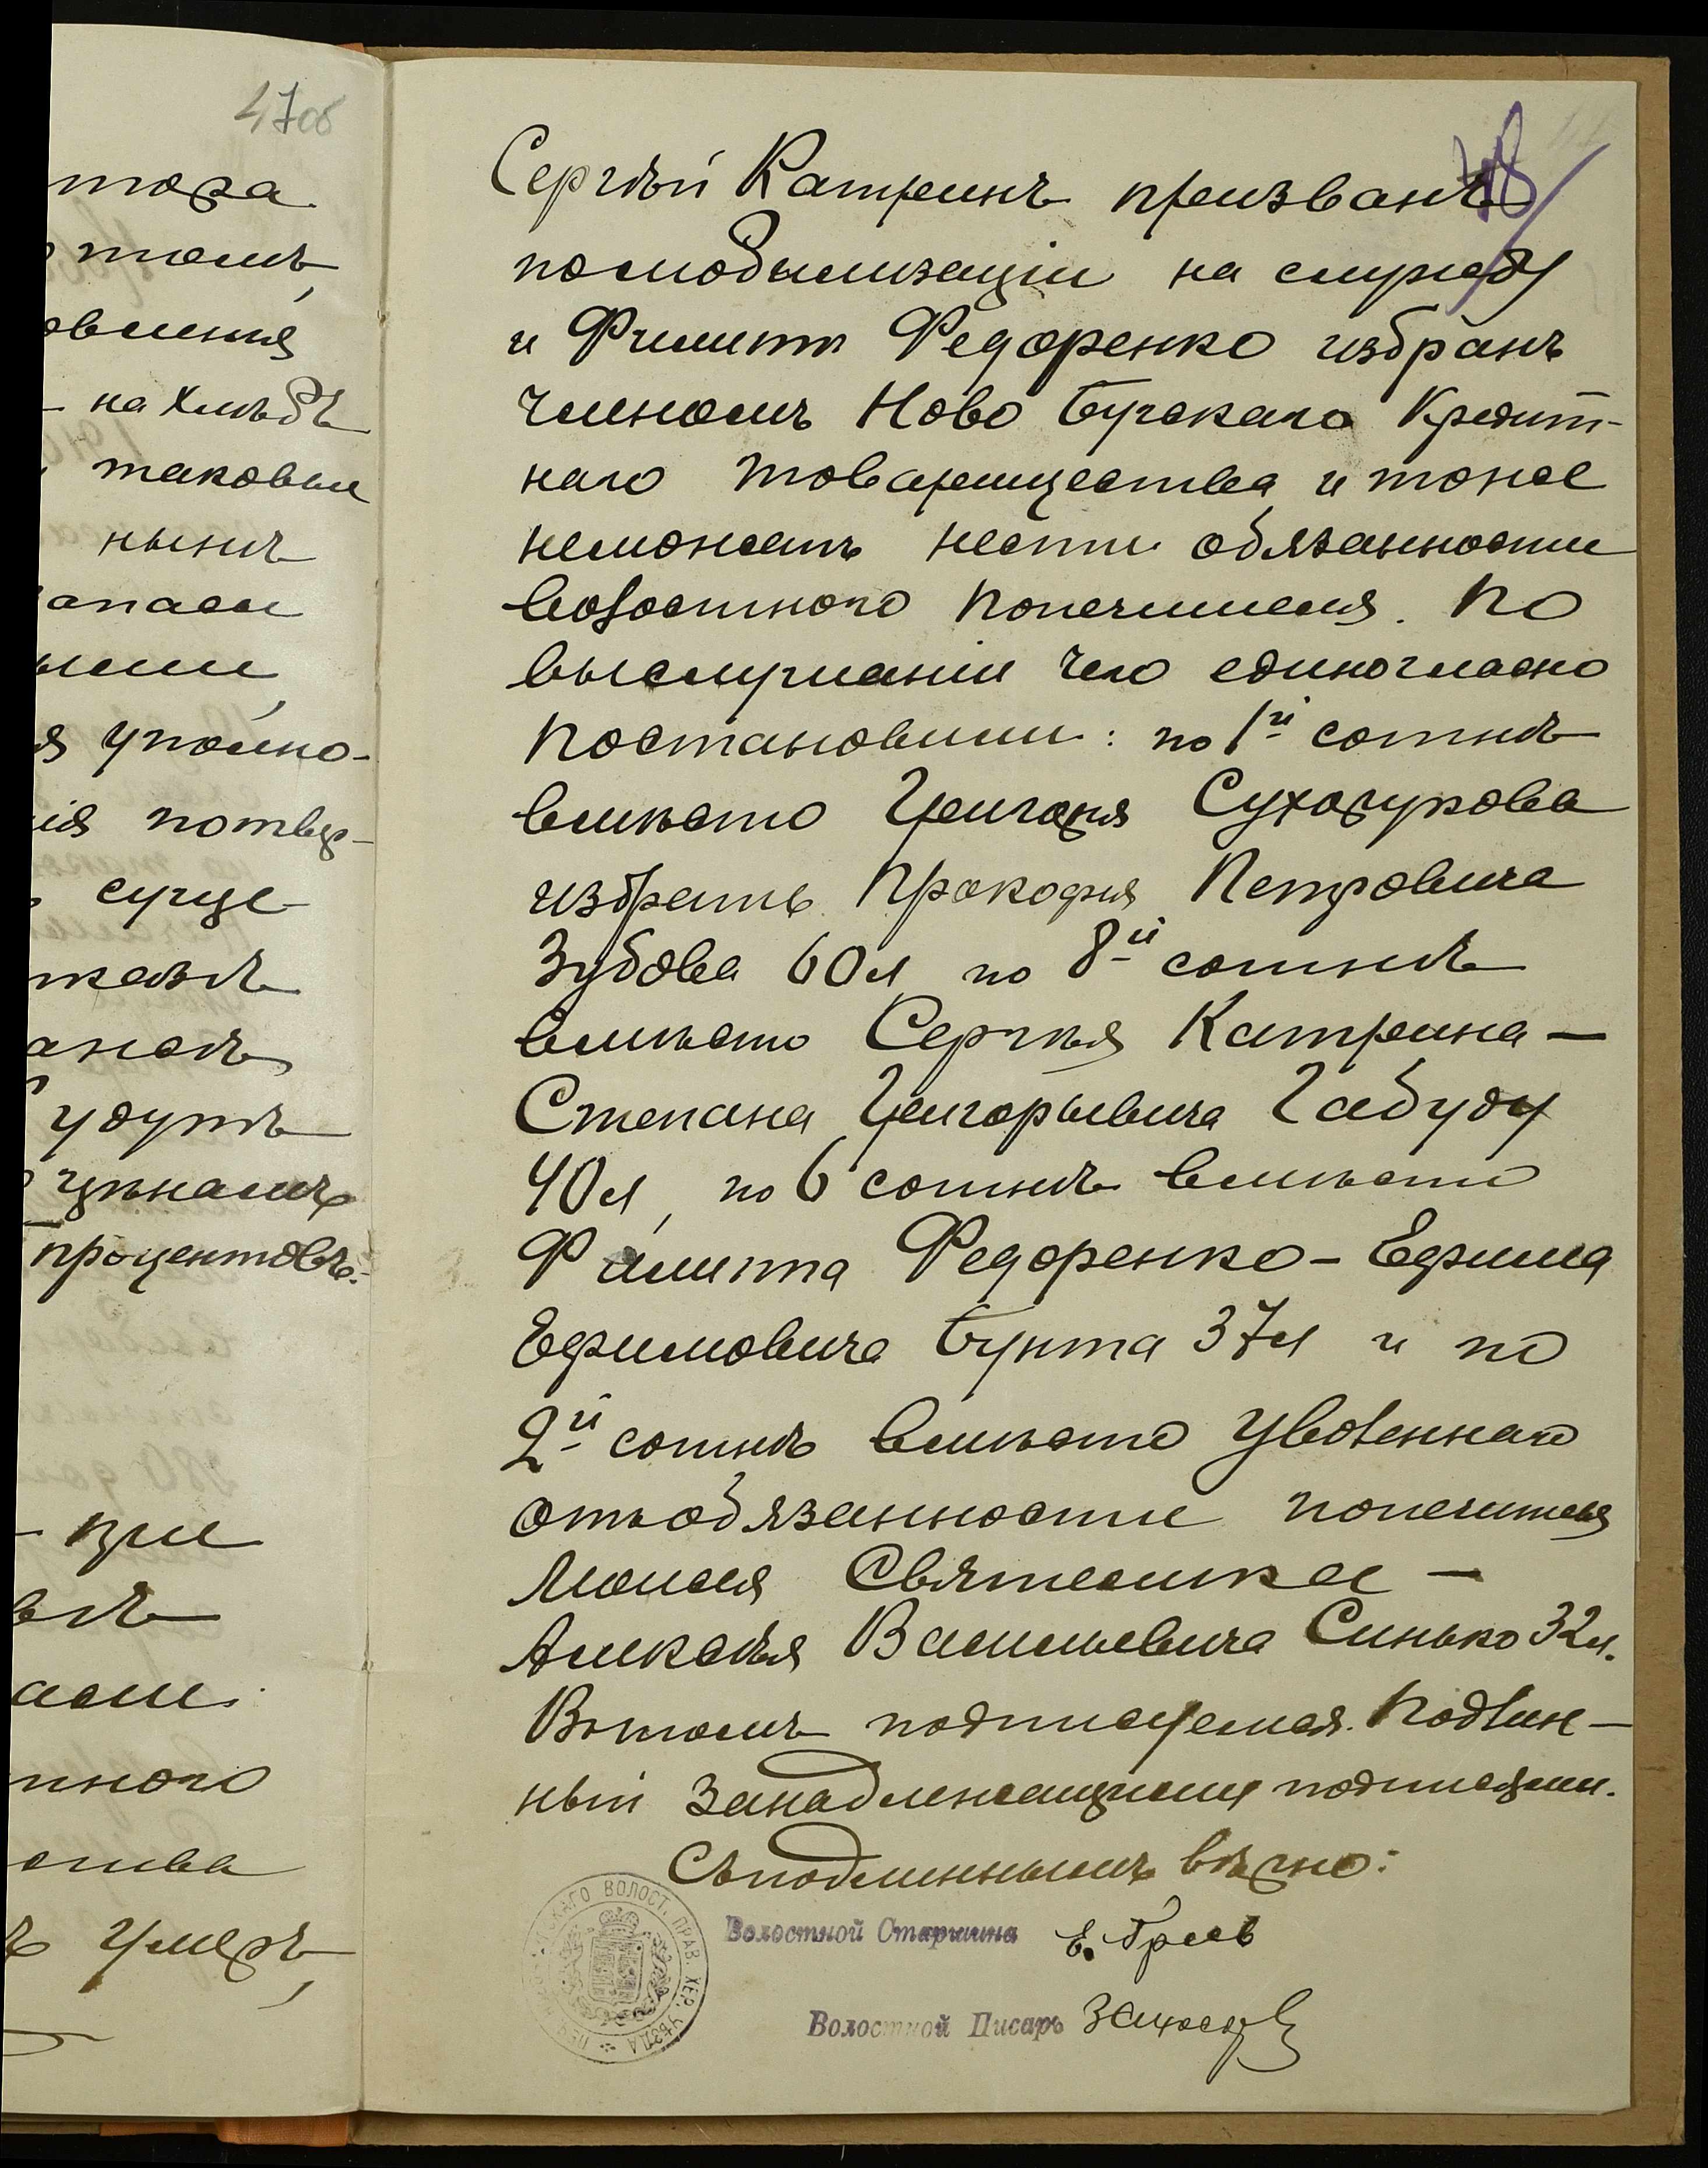 47об
тора
томъ,
овленія
на хлѣбъ
таковыя
нынѣ
апасы
ыми,
я уполно-
ія потвер-
суще
казъ
удутъ
цѣнамъ
процентовъ.
при
вѣ
аси
ного
ства
умеръ,
48
Сергѣй Катринъ призванъ
помобылизаціи на службу
и Филиппъ Федоренко избранъ
членомъ Ново Бугскаго Кредит-
наго товарищества и тоже
неможетъ нести обязанности
волостного попечителя. По
выслушаніи чего единогласно
постановили: по 1й сотнѣ
вмѣсто Григорія Сухорукова
избрать Прокофія Петровича
Зубова 60 л, по 8й сотнѣ
вмѣсто Сергѣя Катрина —
Степана Григорьевича Габуду
40 л, по 6 сотнѣ вмѣсто
Филиппа Федоренко - Ефима
Ефимовича Бунта 37 л и по
2й сотнѣ вмѣсто уволеннаго
отъобязанности попечителя
Моисея —
Алексѣя Васильевича Синько 32 л.
Вътомъ подписуемся. Подлин-
ный занадлежащими подписами.
Съподлиннымъ вѣрно:
Волостной Старшина
Волостной Писарь
ВОЛОСТ. ПРАВ. ХЕР. УѢЗДА